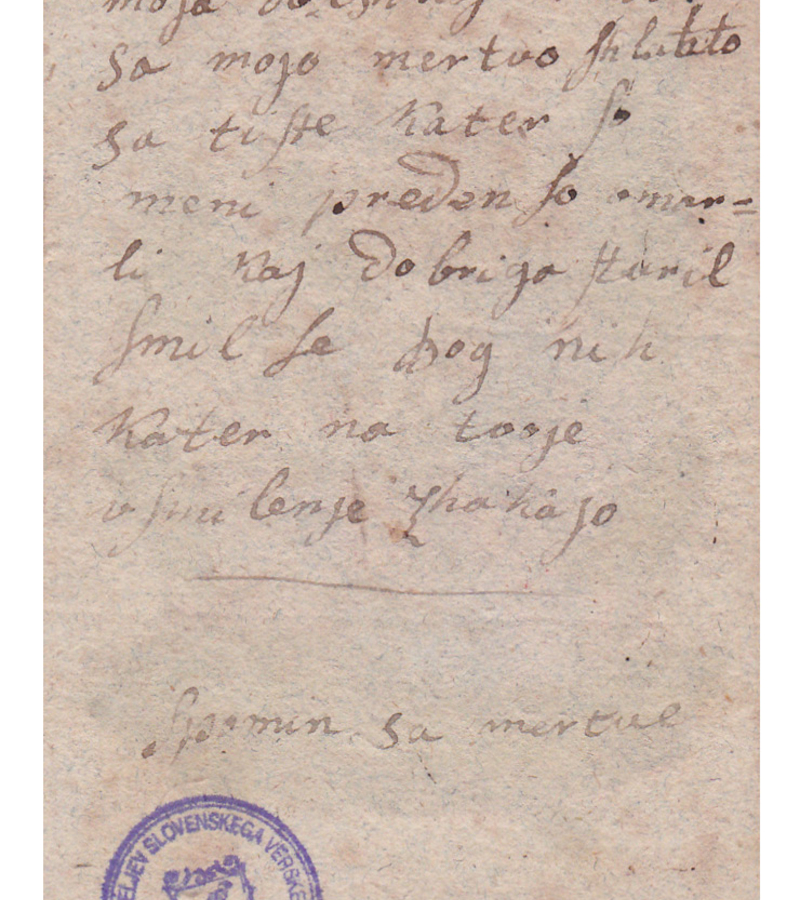 moja
sa mojo mertvo shlahto
sa tiste kater so
meni preden so omer=
li kaj dobriga storil
smil se bog nih
kater na toje
vsmilenje zhakajo
Spomin sa mertve
ELJEV SLOVENSKEGA VERSKE